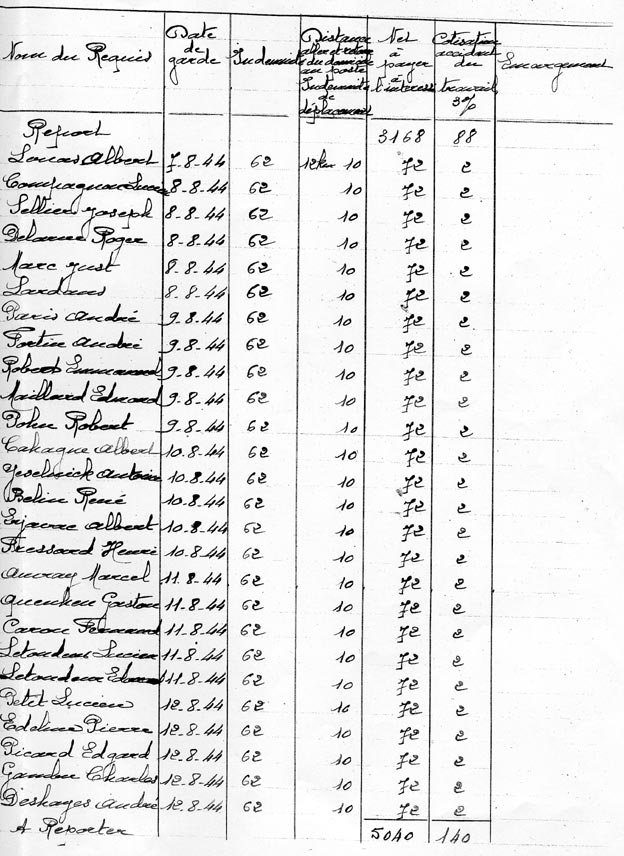 Nom du Requis Date de garde Indemnité Distance aller et retour du domicile au poste Indemnité de déplacement Net à payer à l'intéressé Cotisation accident du travail 3% Emargement
Report 3168 88
Loucas Albert 7.8.44 62 12km 10 72 2
Compagnon Lucien 8.8.44 62 10 72 2
Sellier Joseph 8.8.44 62 10 72 2
Delarue Roger 8.8.44 62 10 72 2
Marc Just 8.8.44 62 10 72 2
Lardans 8.8.44 62 10 72 2
Paris André 9.8.44 62 10 72 2
Fortin André 9.8.44 62 10 72 2
Robert Emmanuel 9.8.44 62 10 72 2
Maillard Edouard 9.8.44 62 10 72 2
Robert 9.8.44 62 10 72 2
Cahagne Albert 10.8.44 62 10 72 2
Antoine 10.8.44 62 10 72 2
Belin René 10.8.44 62 10 72 2
Albert 10.8.44 62 10 72 2
Fressard Henri 10.8.44 62 10 72 2
Auvray Marcel 11.8.44 62 10 72 2
Gaston 11.8.44 62 10 72 2
Caron Fernand 11.8.44 62 10 72 2
Lucien 11.8.44 62 10 72 2
11.8.44 62 10 72 2
Petit Lucien 12.8.44 62 10 72 2
Edeline Pierre 12.8.44 62 10 72 2
Picard Edgard 12.8.44 62 10 72 2
Charles 12.8.44 62 10 72 2
Deshayes André 12.8.44 62 10 72 2
A Reporter 5040 140